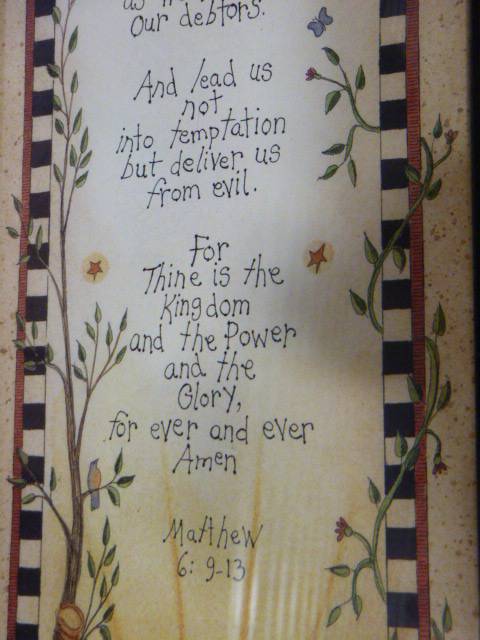 our debtors.
And lead us
not
into temptation
but deliver us
from evil.
For
Thine is the
Kingdom
and the Power
and the
Glory,
for ever and ever
Amen
Matthew
6: 9-13